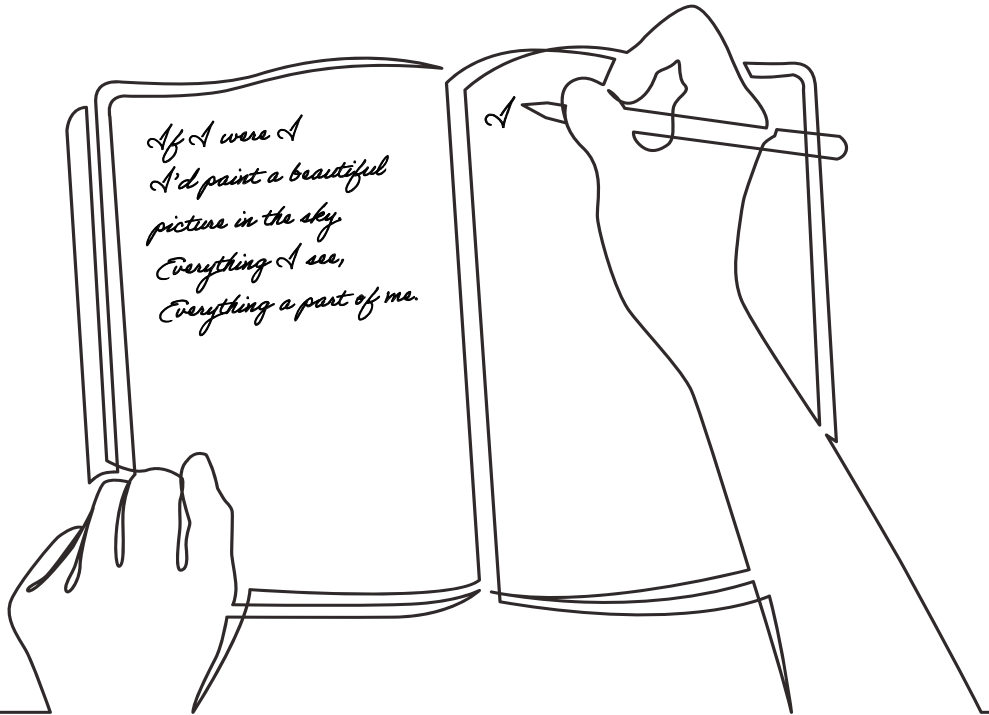 If I were I
I'd paint a beautiful
picture in the sky.
Everything I see,
Everything a part of me.
I